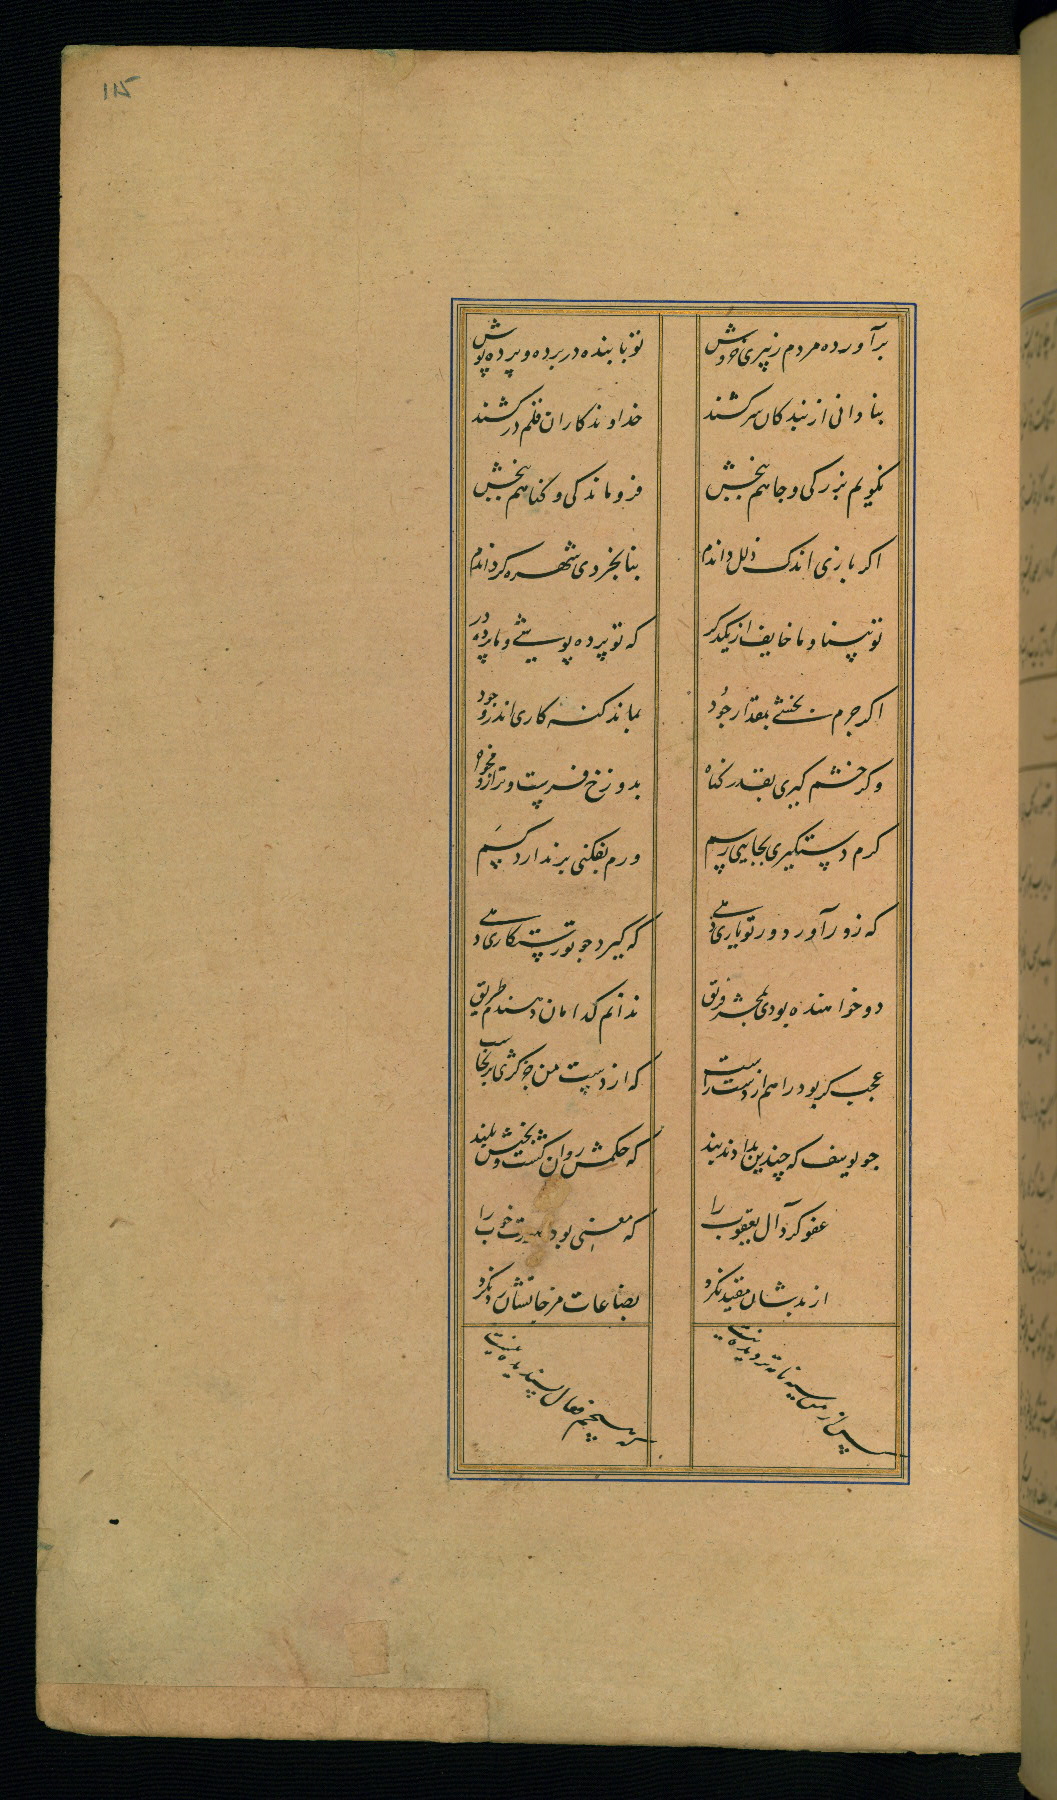 115
برآورده مردم ز پیری خروش
تو با بنده در برده و پرده پوش
بنادانی از بندکان سر کشند
خداوندکاران قلم در کشند
نکویم بزرکی و جاهم ببخش
فروماندکی و کناهم ببخش
اکر یاری اندک زلل داندم
بنابخردی شهره کرداندم
تو بینا و ما خایف از یکدکر
که تو پرده پوشی و ما پرده در
اکر جرم بخشی بمقدار جود
بماند کنه کاری اندر وجود
وکر خشم کیری بقدر کناه
بدوزخ فرست و ترازو مخواه
کرم دستکیری بجایی رسم
ورم بفکنی بر ندارد کسم
که زور آورد ور تو یاری دهی
که کیرد جو تو رستکاری دهی
دو خواهنده بودی بمحشر فریق
ندانم کدامان دهندم طریق
عجب کر بود راهم از دست راست
که از دست من جز کژی برنخاست
جو یوسف که چندین بلا دید و بند
که حکمش روان کشت و بختش بلند
عفو کرد آل یعقوب را
که معنی بود صورت خوب را
از بدشان مقید نکرد
بضاعات مزجاتشان رد نکرد
پس از من سیه نامه تر دیده نیست
که هیچم فعال پسندیده نیست